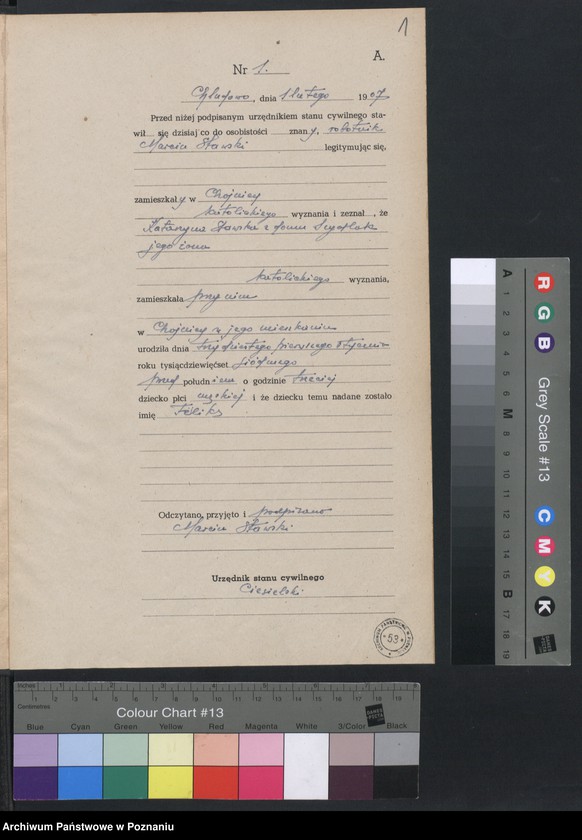 1
A.
Nr 1.
Chludowo, dnia 1 lutego 1907
Przed niżej podpisanym urzędnikiem stanu cywilnego sta-
wił się dzisiaj co do osobistości znany, robotnik
Marcin Sławski legitymując się,
zamieszkały w Chojnicy
katolickiego wyznania i zeznał, że
Katarzyna Sławska z domu
jego żona
katolickiego wyznania,
zamieszkała przy nim
w Chojnicy w jego mieszkaniu
urodziła dnia trzydziestego pierwszego stycznia
roku tysiącdziewięćset siódmego
przed południem o godzinie trzeciej
dziecko płci męskiej i że dziecku temu nadane zostało
imię Feliks
Odczytano, przyjęto i podpisano
Marcin Sławski
Urzędnik stanu cywilnego
Ciesielski
53
A 1 2 3 4 5 6 M 8 9 10 11 12 13 14 15 B 17 18 19
R G B
Grey Scale #13
C M Y K
inches
Centimetres
Colour Chart #13
Blue Cyan Green Yellow Red Magenta White 3/Color Black
Archiwum Państwowe w Poznaniu